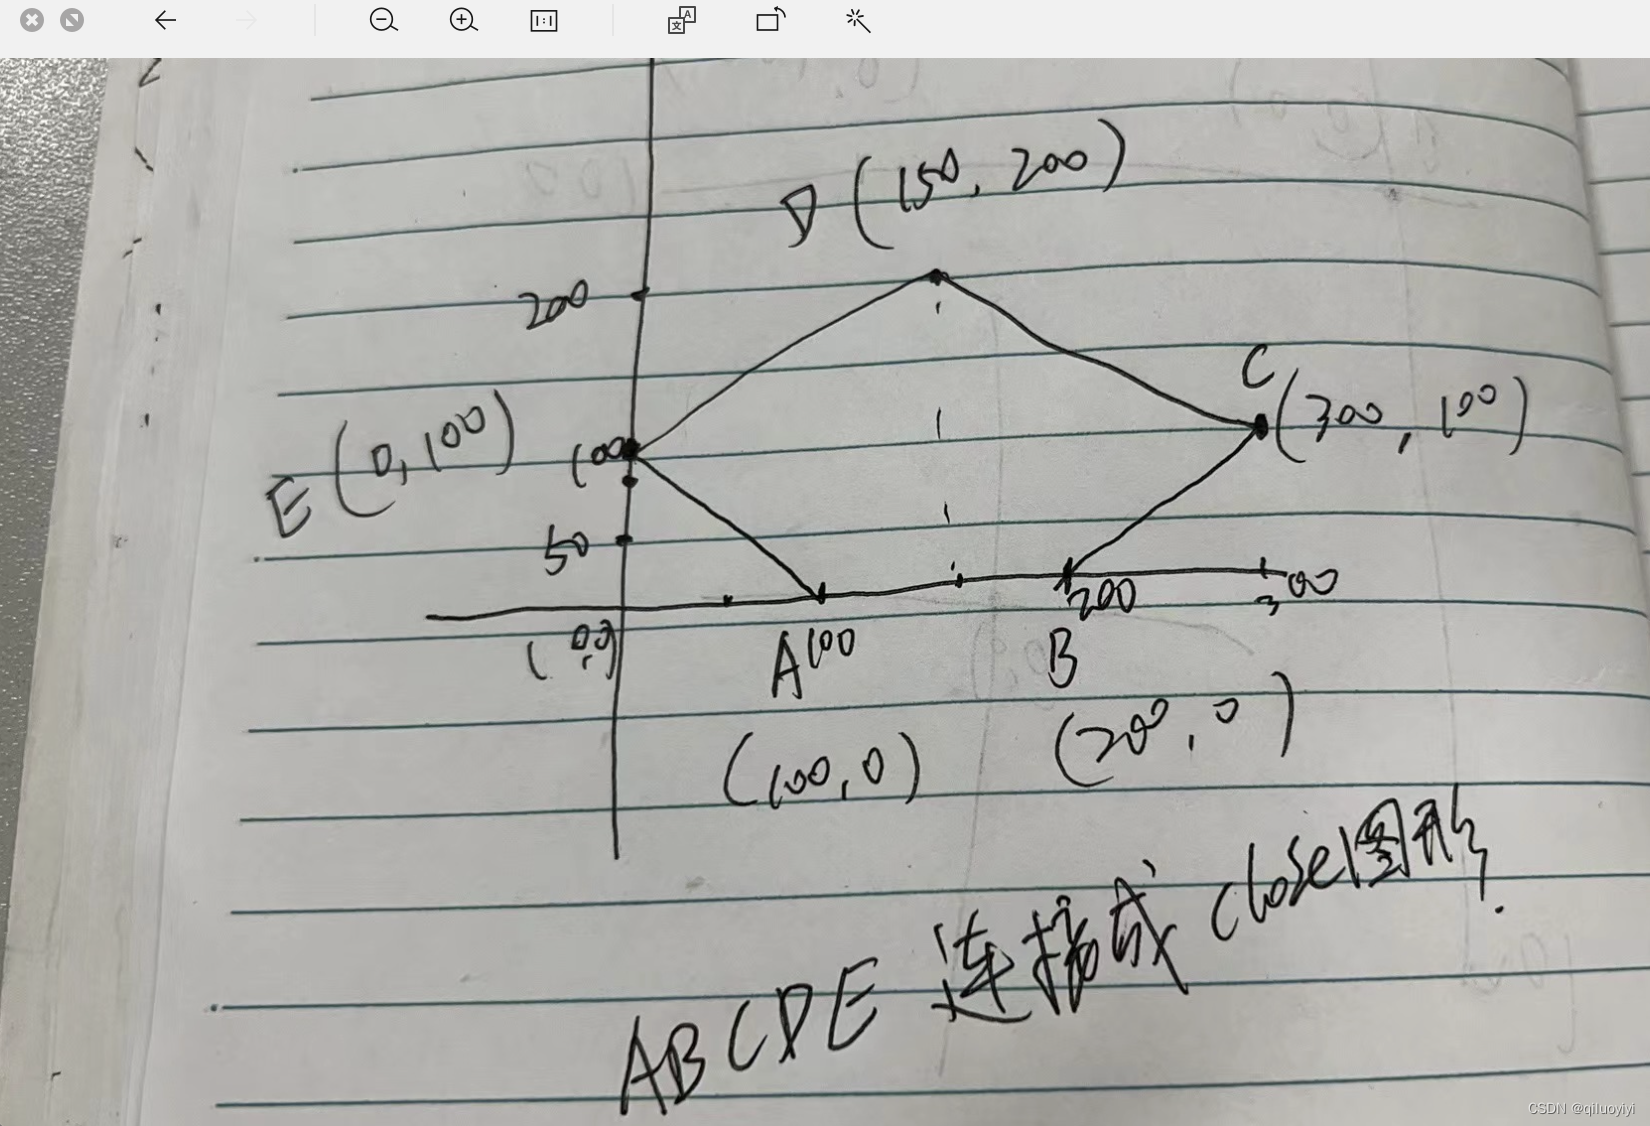 D (150, 200)
200
C
(300, 100)
E (0, 100)
100
50
200
300
(0,0)
A 100
B
(100, 0)
(200, 0)
ABCDE 连接成 close图形.
CSDN @qiluoyiyi